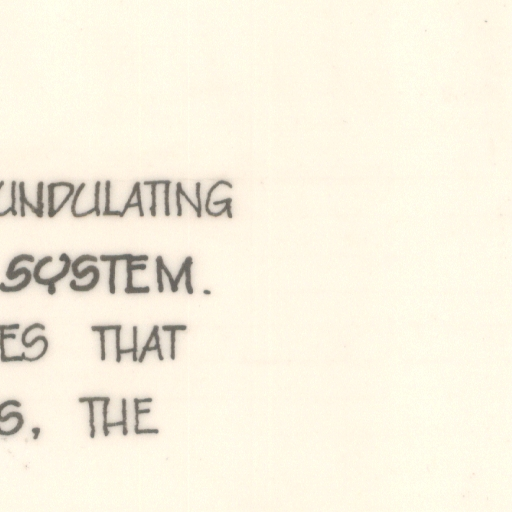 UNDULATING
SYSTEM.
ES THAT
S, THE